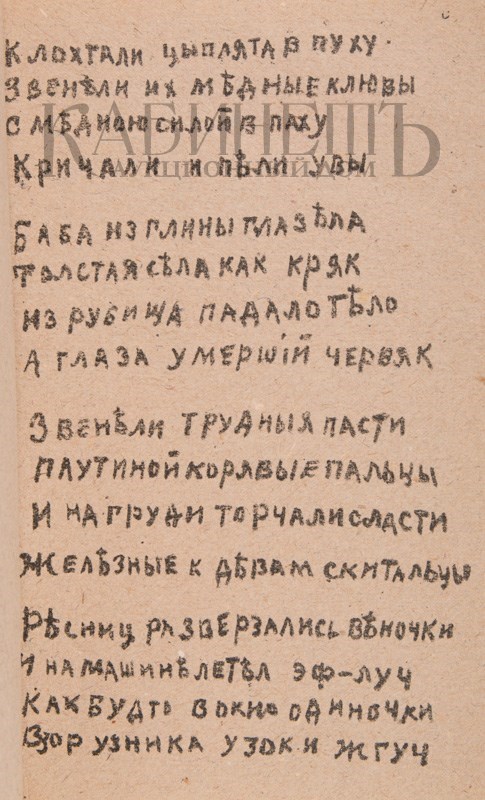 Клохтали цыплята в пуху.
Звенѣли их мѣдные клювы
С мѣдною силой в паху
Кричали и пѣли увы
Баба из глины глазѣла
Толстая сѣла как кряк
Из рубища падало тѣло
А глаза умершій червяк
Звенѣли трудныя пасти
Паутиной корявые пальцы
И на груди торчали сласти
Желѣзные к дѣвам скитальцы
Рѣсниц разверзались вѣночки
И на машинѣ летѣл эф-луч
Как будто в окно одиночки
Взор узника узок и жгуч
КАБИНЕТЪ
АУКЦИОННЫЙ ДОМ